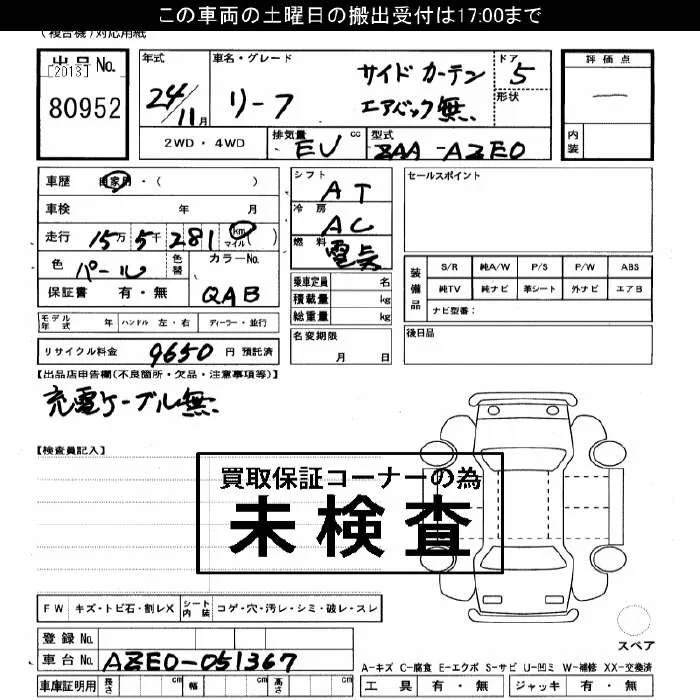 この車両の土曜日の搬出受付は17:00まで
(複合機)対応用紙
出品No.
[2013]
80952
年式
24/11月
車名・グレード
リーフ
サイドカーテン
エアバック無.
ドア
5
形状
評価点
―
内装
2WD・4WD
排気量
EV cc
型式
ZAA-AZE0
車歴 自家用・( )
車検 年 月
走行 15万 5千 281 km マイル ( )
色 パール 色替
カラーNo.
QAB
保証書 有・無
シフト AT
冷房 AC
燃料 電気
乗車定員 名
積載量 kg
総重量 kg
セールスポイント
装備品
S/R 純A/W P/S P/W ABS
純TV 純ナビ 革シート 外ナビ エアB
ナビ型番:
モデル年式 年 ハンドル 左・右 ディーラー・並行
名変期限
月 日
後日品
リサイクル料金 9650 円 預託済
【出品店申告欄(不良箇所・欠品・注意事項等)】
充電ケーブル無.
【検査員記入】
買取保証コーナーの為
未検査
FW キズ・トビ石・割レX シート内装 コゲ・穴・汚レ・シミ・破レ・スレ
登録No.
車台No. AZE0-051367
車庫証明用 長さ cm 幅 cm 高さ cm
スペア
A-キズ C-腐食 E-エクボ S-サビ U-凹ミ W-補修 XX-交換済
工具 有・無 ジャッキ 有・無